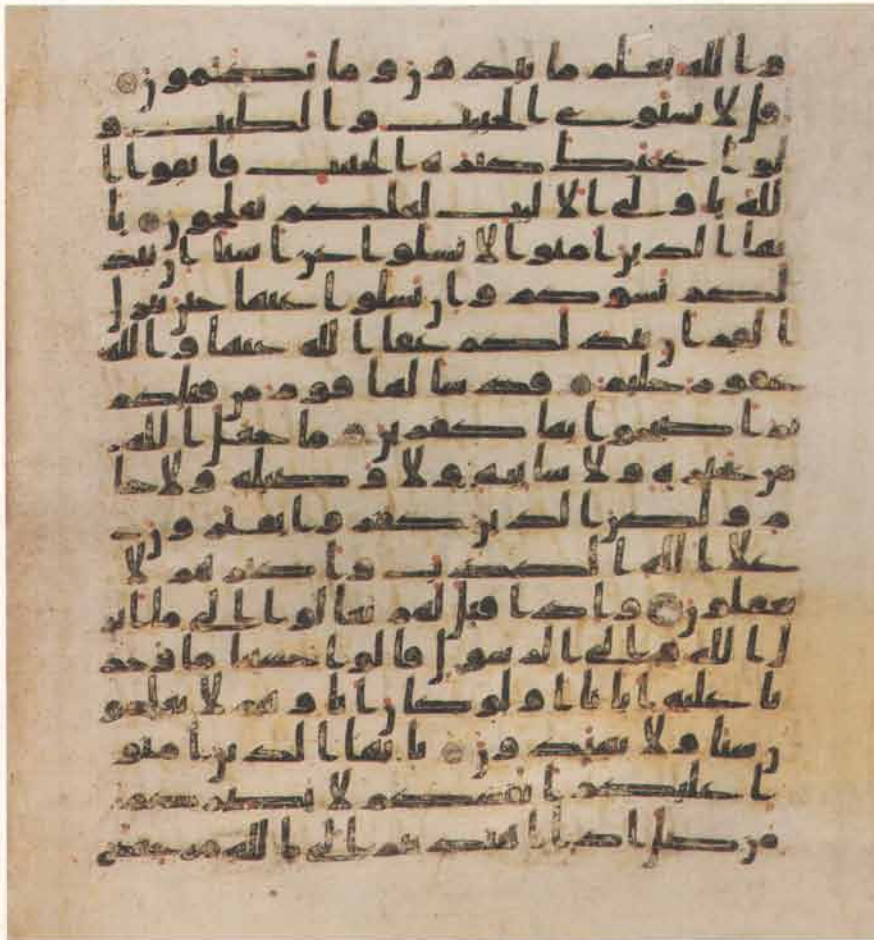 والله يعلم ما تبدون وما تكتمون
قل لا يستوي الخبيث والطيب و
لو اعجبك كثرة الخبيث فاتقوا ا
لله ياولي الالبب لعلكم تفلحون يا
يها الذين امنوا لا تسلوا عن اشيا ان تبد
لكم تسوكم وان تسلوا عنها حين ينزل
القران تبد لكم عفا الله عنها والله
غفور حليم قد سالها قوم من قبلكم
ثم اصبحوا بها كفرين ما جعل الله
من بحيرة ولا سايبة ولا وصيلة ولا حا
م ولكن الذين كفروا يفترون
علا الله الكذب واكثرهم لا
يعقلون واذا قيل لهم تعالوا الى ما انز
ل الله والى الرسول قالوا حسبنا ما وجد
نا عليه ابانا اولو كان اباوهم لا يعلمو
ن شيا ولا يهتدون يايها الذين امنو
ا عليكم انفسكم لا يضركم
من ضل اذا اهتديتم الى الله